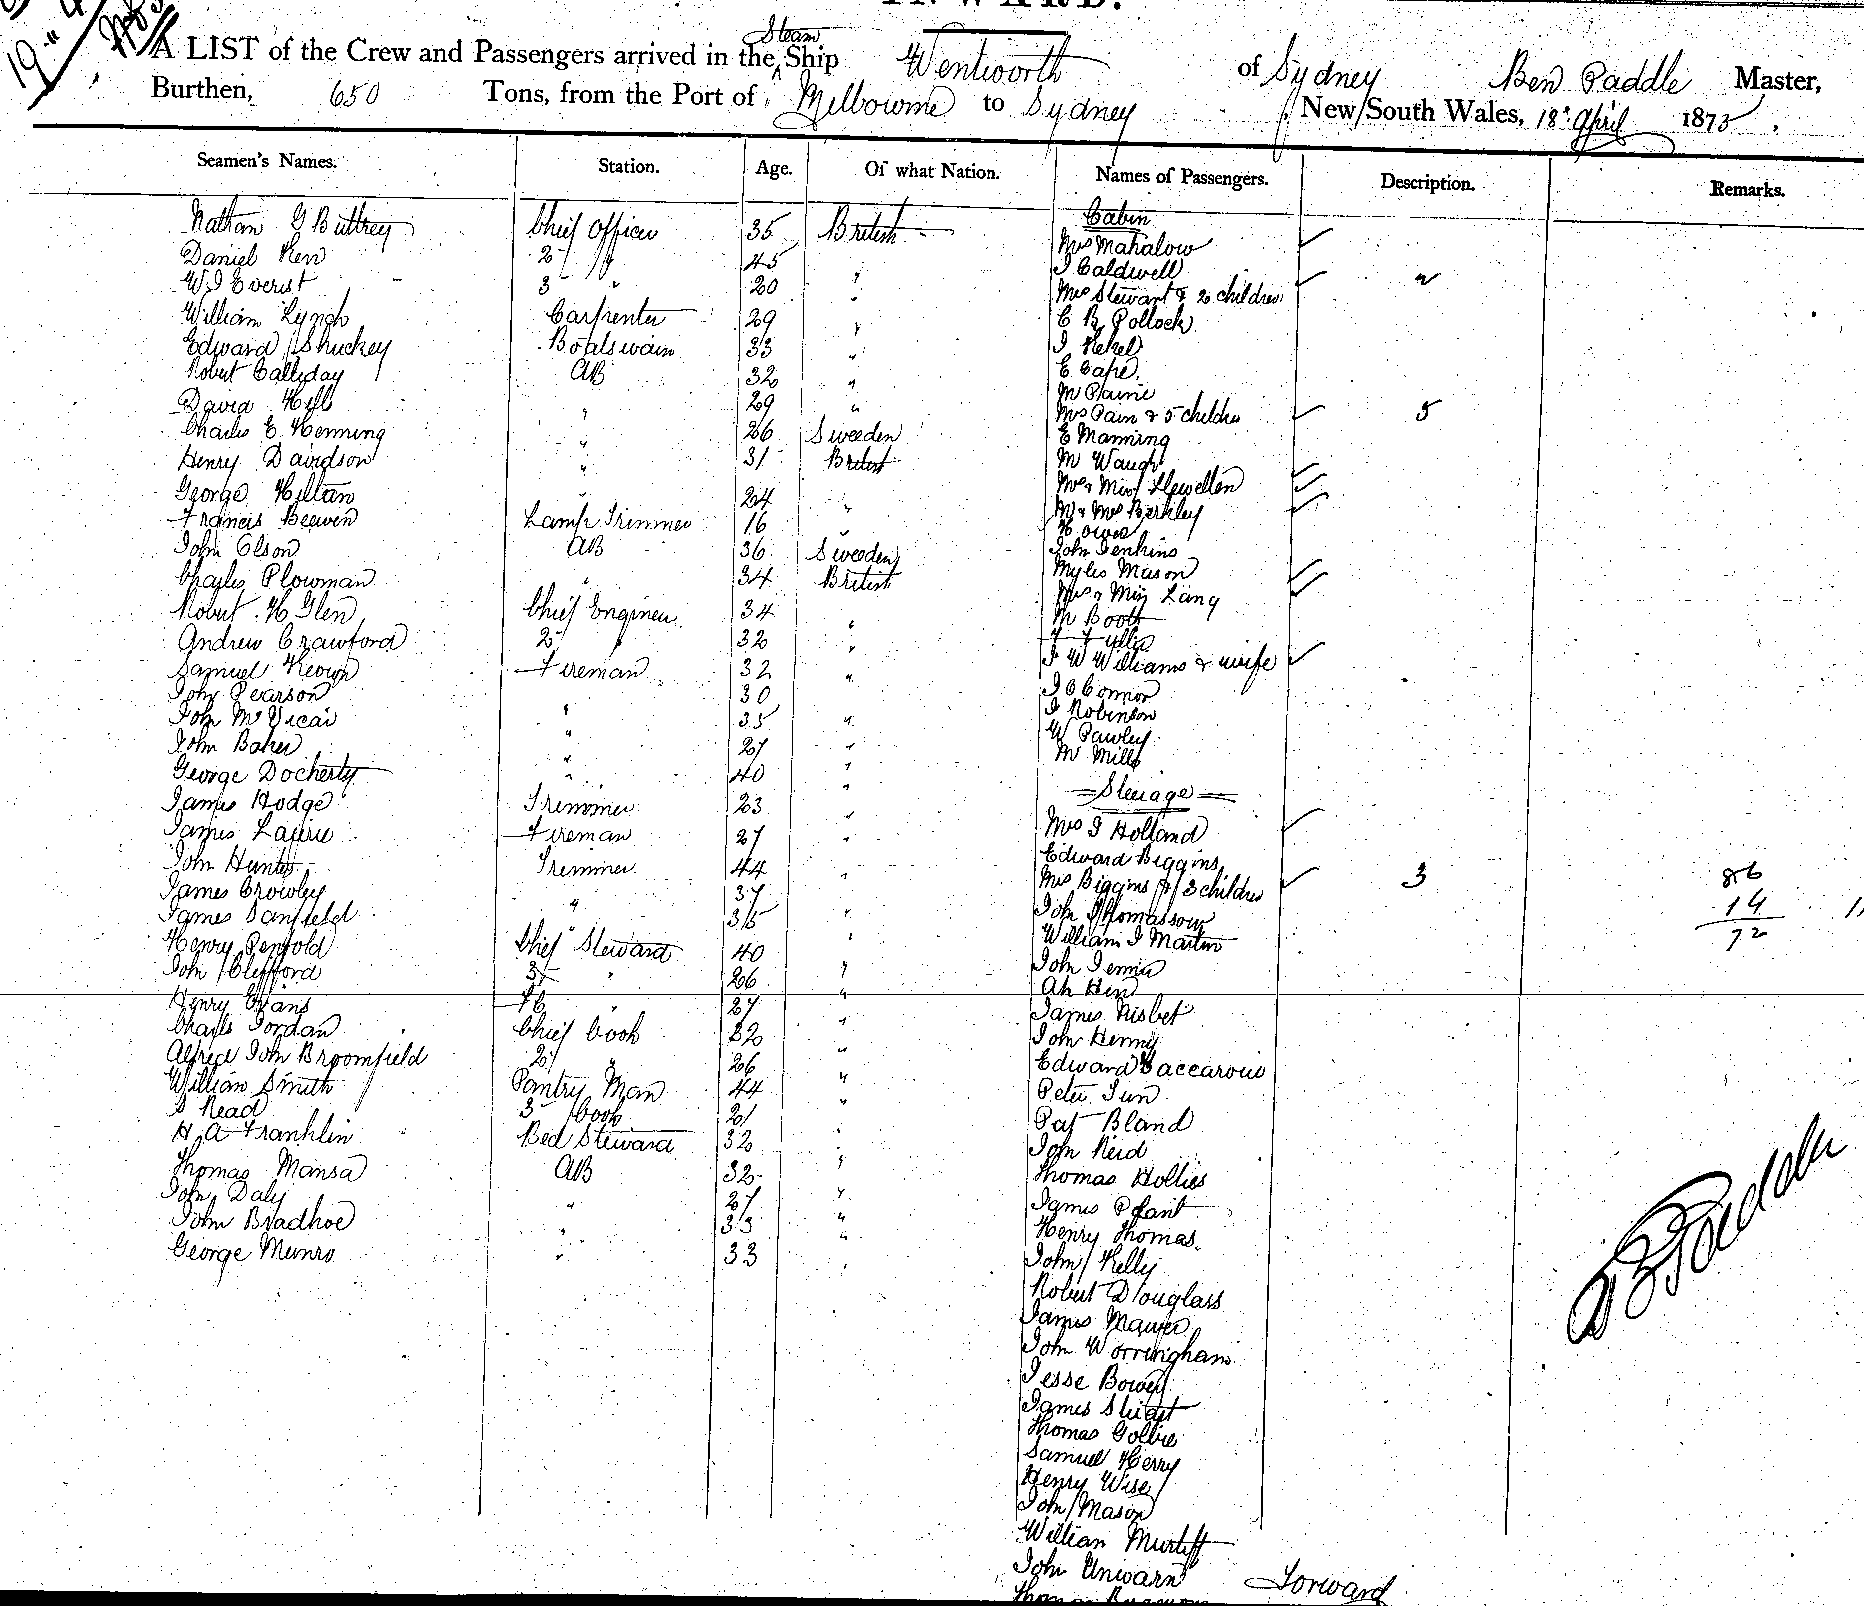 INWARD.
A LIST of the Crew and Passengers arrived in the Steam Ship Wentworth of Sydney Ben Paddle Master,
Burthen, 650 Tons, from the Port of Melbourne to Sydney New South Wales, 18th April 1873,
Seamen's Names. Station. Age. Of what Nation. Names of Passengers. Description. Remarks.
Nathan G Buttrey Chief Officer 35 British
Daniel Ken 2 " 45 "
W J Everist 3 " 20 "
William Lynch Carpenter 29 "
Edward Shuckey Boatswain 33 "
Robert Calliday AB 32 "
David Hill " 29 "
Charles E Henning " 26 Sweeden
Henry Davidson " 31 British
George Hiltan " 24 "
Francis Beewen Lamp Trimmer 16 "
John Olson AB 36 Sweeden
Charles Plowman " 34 British
Robert H Glen Chief Engineer 34 "
Andrew Crawford 2 32 "
Samuel Keown Fireman 32 "
John Pearson 30
John McVicar " 35 "
John Baker " 27 "
George Docherty " 40 "
James Hodge Trimmer 23 "
James Laurie Fireman 27 "
John Hunter Trimmer 44 "
James Crowley " 37 "
James Canfield 35 "
Henry Penfold Chief Steward 40 "
John Clifford 3 " 26 "
Henry Evans " 27 "
Charles Jordan Chief Cook 32 "
Alfred John Broomfield 2 " 26 "
William Smith Pantry Man 44 "
S Read 3 Cook 21 "
H A Franklin Bed Steward 32 "
Thomas Mansa AB 32 "
John Daly " 27 "
John Bradhoe " 33 "
George Munro " 33 "
Cabin
Mrs Mahalow
J Caldwell
Mrs Stewart & 2 children 2
C B Pollock
J Kekel
E Cape
M Paine
Mrs Pain & 5 children 5
E Manning
M Waugh
Mrs & Miss Llewellen
Mr & Mrs Barkley
H Owes
John Jenkins
Myles Mason
Mrs & Miss Lang
M Booth
J W Williams & wife
J O Connor
J Robinson
W Pawley
M Mills
Steerage
Mrs J Holland
Edward Biggins
Mrs Biggins & 3 children 3
John Thomasson
William J Martin
John Jennis
Ah Hen
James Nisbet
John Kenny
Edward Vaccarous
Peter Sun
Pat Bland
John Reid
Thomas Hollies
James Plant
Henry Thomas
John Kelly
Robert Douglass
James Mawer
John Worringham
Jesse Bower
James Sleigt
Thomas Gollie
Samuel Kerry
Henry Wise
John Mason
William Murtiff
John Unwarn
86
14
72
B Paddle
Forward